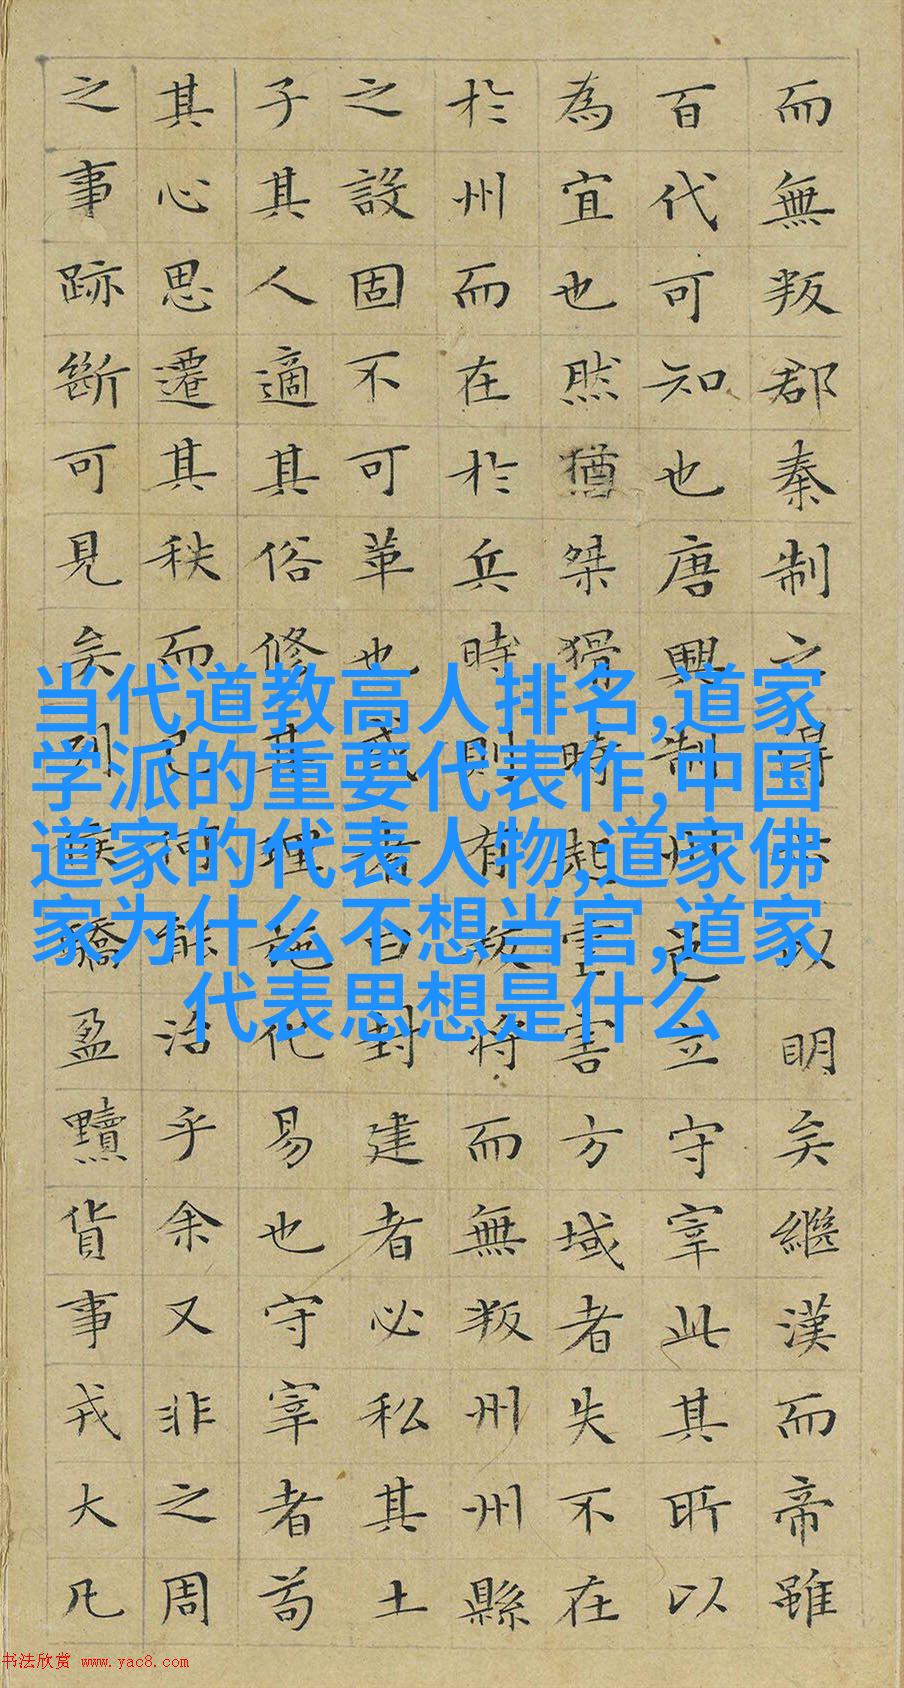 而無叛郡秦制之得亦以明矣繼漢而帝雖
百代可知也唐興制州邑立守宰此其所以
為宜也然猶桀猾時起虐害方域者失不在
於州而在於兵時則有叛將而無叛州州縣
之設固不可革也或者曰封建者必私其土
子其人適其俗修其理施化易也守宰者苟
其心思遷其秩而已何能治乎余又非之周
之事跡斷可見矣列侯驕盈黷貨事戎大凡
当代道教高人排名,道家
学派的重要代表作,中国
道家的代表人物,道家佛
家为什么不想当官,道家
代表思想是什么
书法欣赏 www.yac8.com